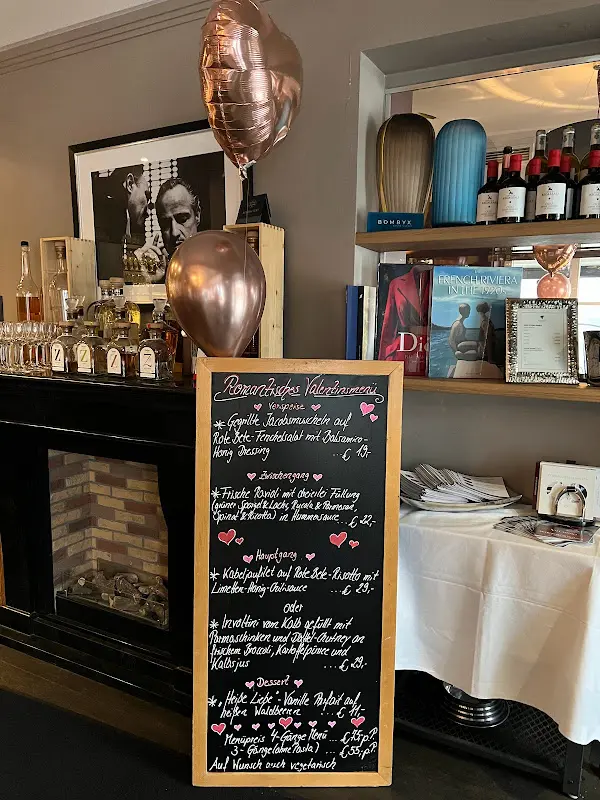 Romantisches Valentinsmenü
Vorspeise
* Gegrillte Jacobsmuscheln auf
Rote Bete-Fenchelsalat mit Balsamico-
Honig Dressing
...€ 19,-
Zwischengang
* Frische Ravioli mit dreierlei Füllung
(grüner Spargel & Lachs, Rucola & Parmesan,
Spinat & Ricotta) in Hummersauce...€ 22,-
Hauptgang
* Kabeljaufilet auf Rote Bete-Risotto mit
Limetten-Honig-Chilisauce ...€ 29,-
oder
* Involtini vom Kalb gefüllt mit
Parmaschinken und Dattel-Chutney an
frischem Broccoli, Kartoffelpüree und
Kalbsjus ...€ 29,-
Dessert
* "Heiße Liebe"-Vanille Parfait auf
heißen Waldbeeren ...€ 11,-
Menüpreis 4-Gänge Menü ...€ 75,-p.P.
3-Gänge (ohne Pasta) ...€ 55,-p.P.
Auf Wunsch auch vegetarisch
BOMBYX
FRENCH RIVIERA
IN THE 1920s
Di